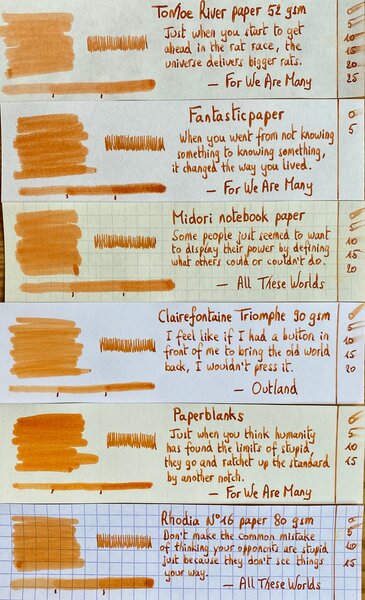 TomoeRiver paper 52 gsm
Just when you start to get
ahead in the rat race, the
universe delivers bigger rats.
— For We Are Many
0
5
10
15
20
25
Fantasticpaper
When you went from not knowing
something to knowing something,
it changed the way you lived.
— For We Are Many
0
5
Midori notebook paper
Some people just seemed to want
to display their power by defining
what others could or couldn't do.
— All These Worlds
0
5
10
15
20
Clairefontaine Triomphe 90 gsm
I feel like if I had a button in
front of me to bring the old world
back, I wouldn't press it.
— Outland
0
5
10
15
20
Paperblanks
Just when you think humanity
has found the limits of stupid,
they go and ratchet up the standard
by another notch.
— For We Are Many
0
5
10
15
Rhodia N°16 paper 80 gsm
Don't make the common mistake
of thinking your opponents are stupid
just because they don't see things
your way.
— All These Worlds
0
5
10
15